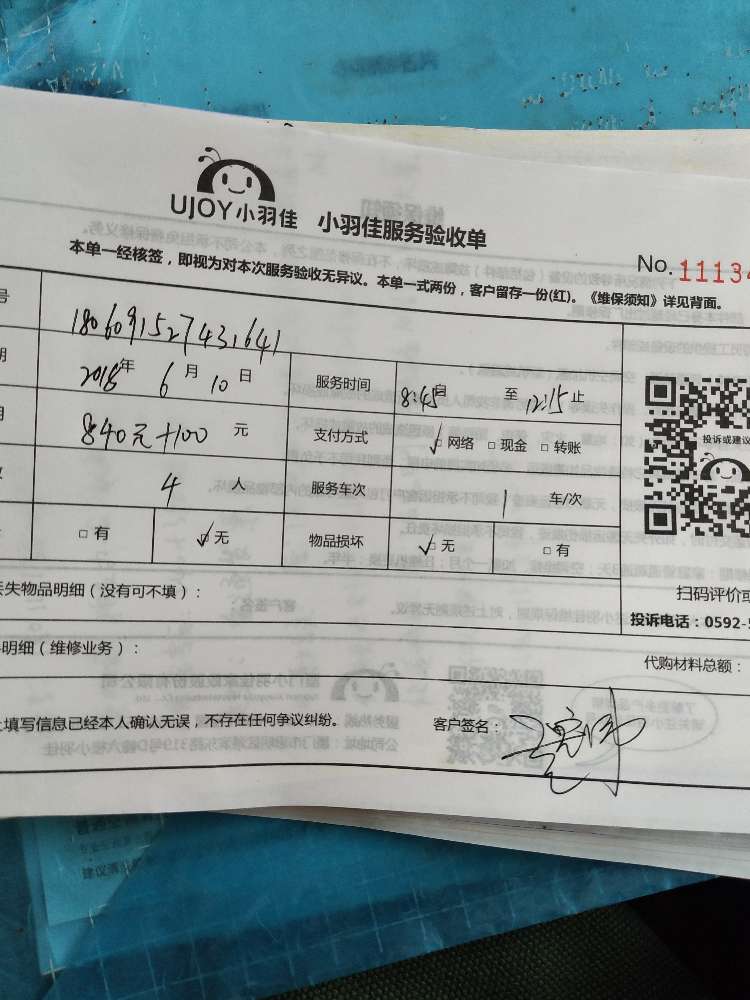 UJOY小羽佳 小羽佳服务验收单
本单一经核签，即视为对本次服务验收无异议。本单一式两份，客户留存一份(红)。《维保须知》详见背面。
No.11134
号 1806091527431641
期 2018年 6月 10日 服务时间 8:45自 至 12:15止
用 840元+100 元 支付方式 ☑网络 □现金 □转账
数 4 人 服务车次 1 车/次
□有 ☑无 物品损坏 ☑无 □有
投诉或建议
丢失物品明细（没有可不填）：
扫码评价或
投诉电话：0592-5
明细（维修业务）：
代购材料总额：
上填写信息已经本人确认无误，不存在任何争议纠纷。
客户签名：